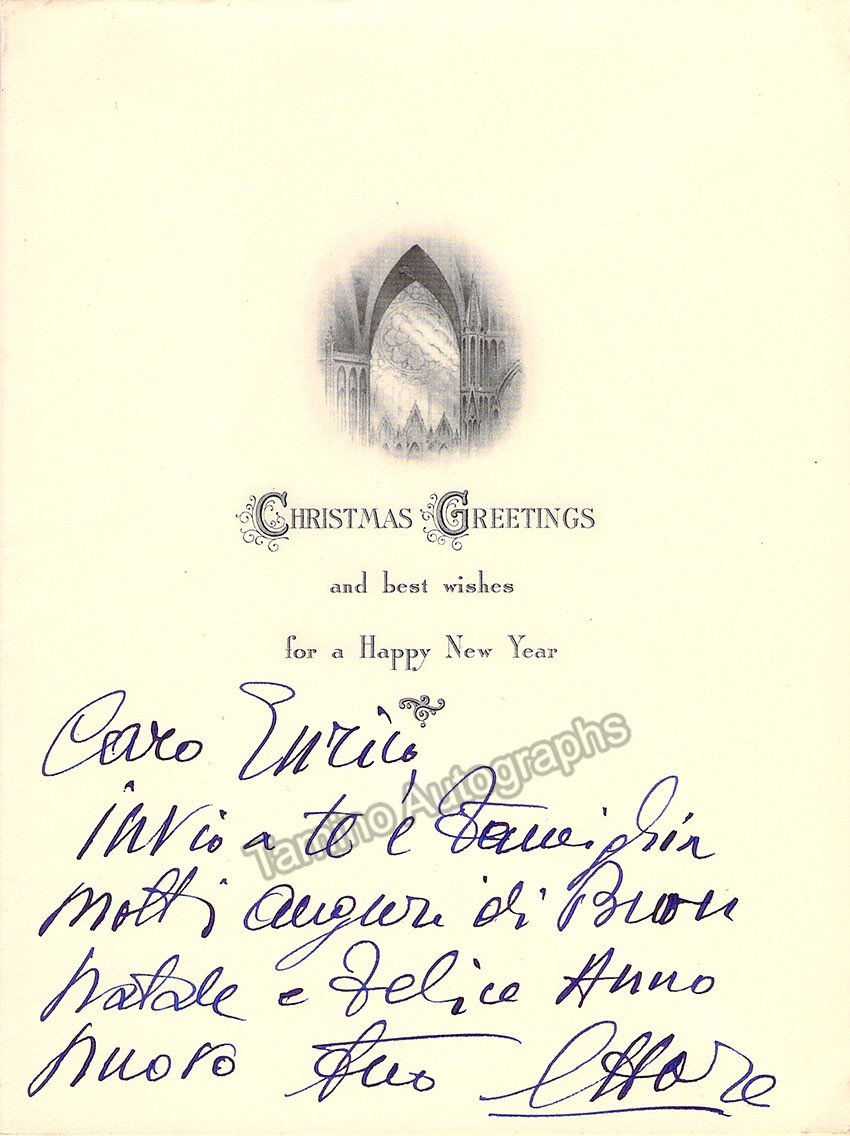 CHRISTMAS GREETINGS
and best wishes
for a Happy New Year
Caro Enrico,
invio a te é famiglia
molti auguri di Buon
Natale e Felice Anno
nuovo tuo Ettore
Tamino Autographs